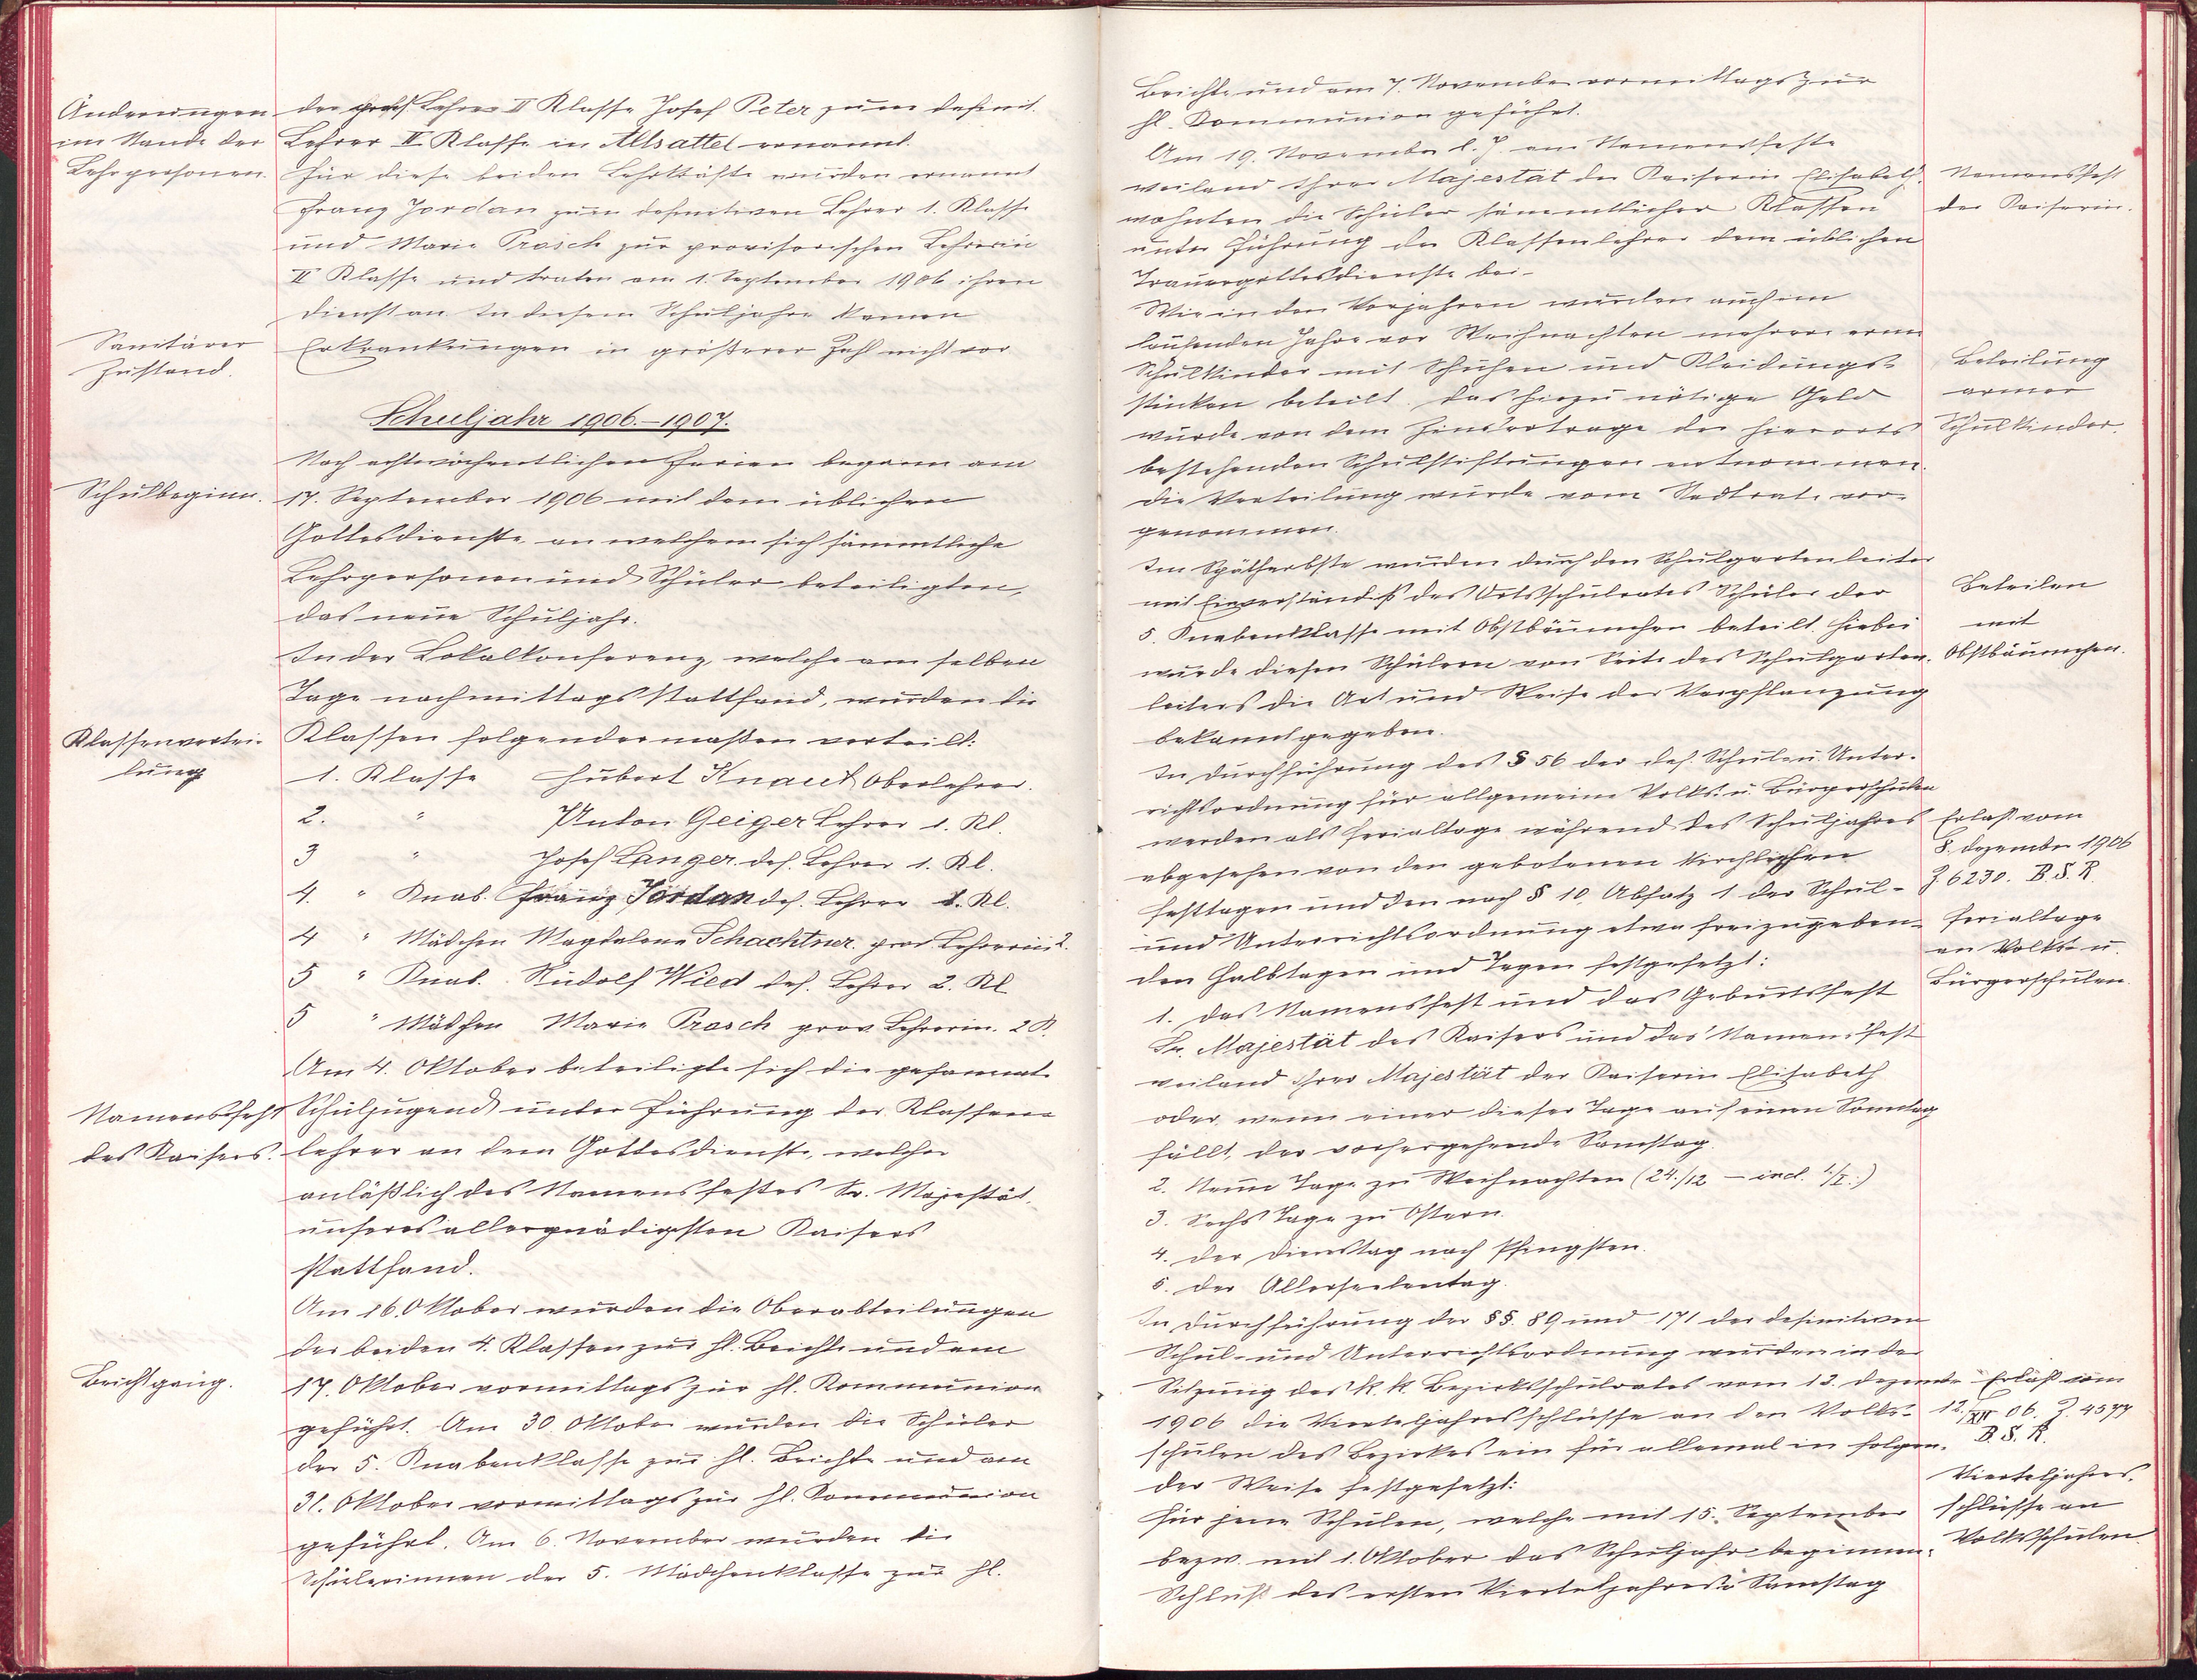 Änderungen
im Stande der
Lehrpersonen.
der prov. Lehrer II Klasse Josef Peter zum definit.
Lehrer II Klasse in Altsattel ernannt.
Für diese beiden Lehrkräfte wurden ernannt
Franz Jordan zum definitiven Lehrer 1. Klasse
und Marie Prasch zur provisorischen Lehrerin
II Klasse und traten am 1. September 1906 ihren
Dienst an. In diesem Schuljahre kamen
Sanitärer
Zustand.
Erkrankungen in größerer Zahl nicht vor.
Schuljahr 1906.–1907.
Nach achtwöchentlichen Ferien begann am
Schulbeginn.
17. September 1906 mit dem üblichen
Gottesdienste, an welchem sich sämmtliche
Lehrpersonen und Schüler beteiligten,
das neue Schuljahr.
In der Lokalkonferenz, welche am selben
Tage nachmittags stattfand, wurden die
Klassenvertei-
lung
Klassen folgendermaßen verteilt:
1. Klasse Hubert Knaut Oberlehrer.
2. " Anton Geiger Lehrer 1. Kl.
3 " Josef Langer def. Lehrer 1. Kl.
4. " Knab. Franz Jordan def. Lehrer 1. Kl.
4 " Mädchen Magdalena Schachtner prov Lehrerin 2.
5 " Knab. Rudolf Wied def. Lehrer 2. Kl
5 " Mädchen Marie Prasch prov Lehrerin. 2 K.
Am 4. Oktober beteiligte sich die gesammte
Namensfest
des Kaisers.
Schuljugend unter Führung der Klassen-
lehrer an dem Gottesdienste, welcher
anläßlich des Namensfestes Sr. Majestät,
unseres allergnädigsten Kaisers
stattfand.
Am 16. Oktober wurden die Oberabteilungen
der beiden 4. Klassen zur hl. Beichte und am
Beichtgang.
17. Oktober vormittags zur hl. Kommunion
geführt. Am 30 Oktober wurden die Schüler
der 5. Knabenklasse zur hl. Beichte und am
31. Oktober vormittags zur hl. Kommunion
geführt. Am 6. November wurden die
Schülerinnen der 5. Mädchenklasse zur hl.
Beichte und am 7. November vormittags zur
hl. Kommunion geführt.
Am 19. November l. J. am Namensfeste
weiland Ihrer Majestät der Kaiserin Elisabeth
wohnten die Schüler sämmtlicher Klassen
unter Führung der Klassenlehrer dem üblichen
Trauergottesdienste bei.
Namensfest
der Kaiserin.
Wie in den Vorjahren wurden auch im
laufenden Jahre vor Weihnachten mehrere arme
Schulkinder mit Schuhen und Kleidungs-
stücken beteilt. Das hiezu nötige Geld
wurde von dem Zinsertrage der hierorts
bestehenden Schulstiftungen entnommen.
Die Verteilung wurde vom Stadtrate vor-
genommen.
Beteilung
armer
Schulkinder.
Im Spätherbste wurden durch den Schulgartenleiter
mit Einverständniß des Ortsschulrates Schüler der
5. Knabenklasse mit Obstbäumchen beteilt. Hiebei
wurde diesen Schülern von Seite des Schulgarten-
leiters die Art und Weise der Verpflanzung
bekanntgegeben.
Beteilen
mit
Obstbäumchen.
In Durchführung des § 56 der def. Schul- u. Unter-
richtsordnung für allgemeine Volks- u. Bürgerschulen
werden als Ferialtage während des Schuljahres
abgesehen von den gebotenen kirchlichen
Festtagen und den nach § 10, Absatz 1 der Schul-
und Unterrichtsordnung etwa freizugeben-
den Halbtagen und Tagen festgesetzt:
Erlaß vom
8. Dezember 1906
Z. 6230. B.S.R.
Ferialtage
an Volks- u.
Bürgerschulen.
1. Das Namensfest und das Geburtsfest
Sr. Majestät des Kaisers und das Namensfest
weiland Ihrer Majestät der Kaiserin Elisabeth
oder, wenn einer dieser Tage auf einen Sonntag
fällt, der vorhergehende Samstag.
2. Neun Tage zu Weihnachten (24./12 – incl. 1./I.)
3. Sechs Tage zu Ostern.
4. Der Dienstag nach Pfingsten.
5. Der Allerseelentag.
In Durchführung der §§. 89 und 171 der definitiven
Schul- und Unterrichtsordnung wurden in der
Sitzung des k. k. Bezirksschulrates vom 12. Dezember
1906 die Vierteljahresschlüsse an den Volks-
schulen des Bezirkes ein für allemal in folgen-
der Weise festgesetzt:
Für jene Schulen, welche mit 15. September
bezw. mit 1. Oktober das Schuljahr beginnen:
Schluß des ersten Vierteljahres: Samstag
Erlaß vom
12./XII 06. Z. 4577
B.S.R.
Vierteljahres-
schlüsse an
Volksschulen.